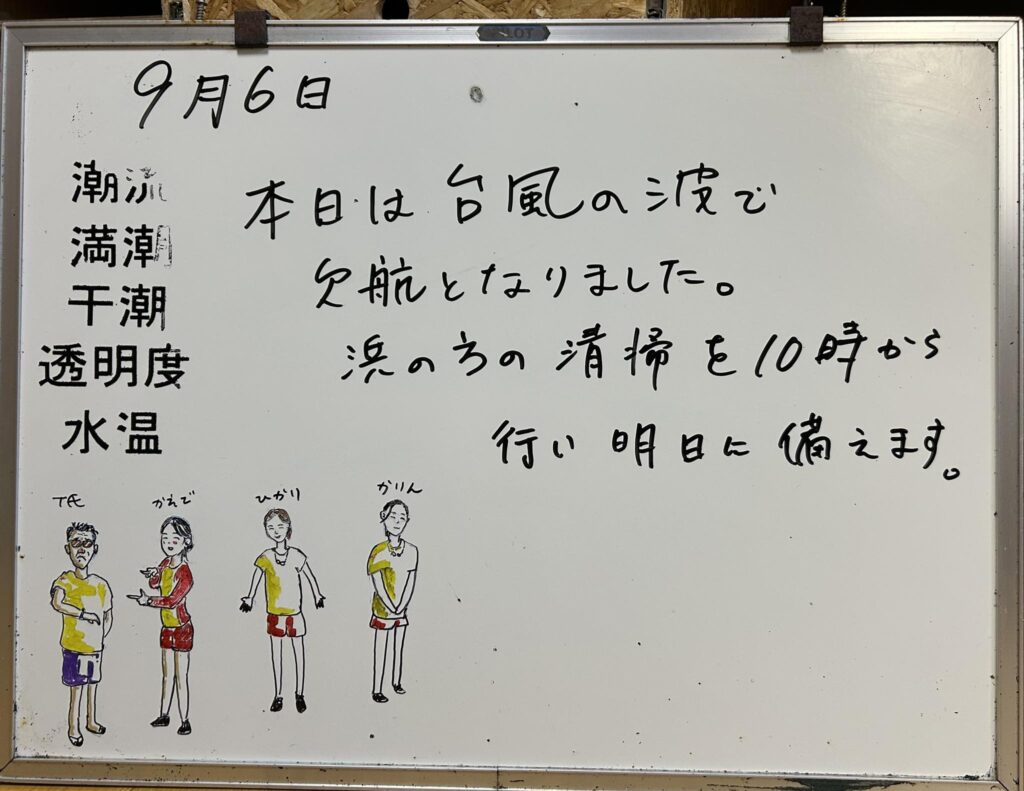 9月6日
潮流
満潮
干潮
透明度
水温
本日は台風の波で
欠航となりました。
浜の方の清掃を10時から
行い明日に備えます。
かえで
ひかり
かりん